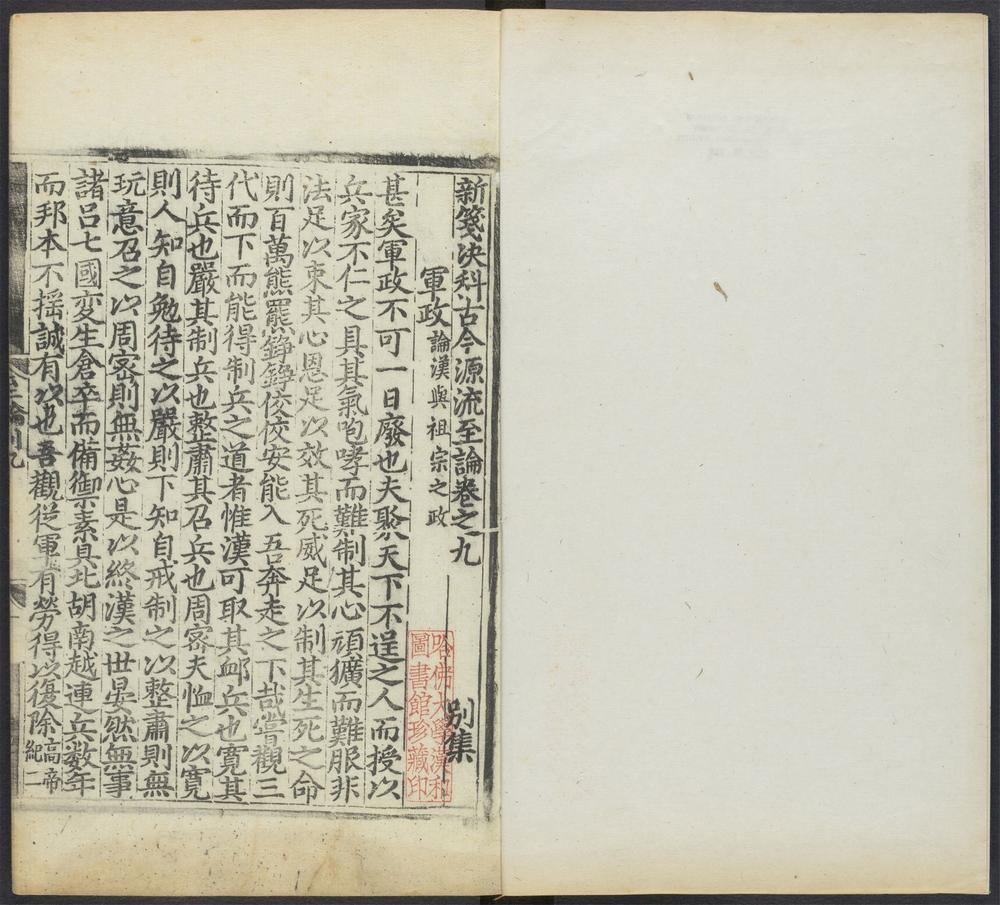 新箋決科古今源流至論卷之九
別集
軍政論漢與祖宗之政
甚矣軍政不可一日廢也夫聚天下不逞之人而授以
兵家不仁之具其氣咆哮而難制其心頑獷而難服非
法足以束其心恩足以效其死威足以制其生死之命
則百萬熊羆錚錚佼佼安能入吾奔走之下哉嘗觀三
代而下而能得制兵之道者惟漢可取其䘏兵也寬其
待兵也嚴其制兵也整肅其召兵也周宻夫恤之以寬
則人知自勉待之以嚴則下知自戒制之以整肅則無
玩意召之以周宻則無姦心是以終漢之世晏然無事
諸吕七國変生倉卒而備禦素具北胡南越連兵数年
而邦本不揺誠有以也吾觀從軍有勞得以復除高帝紀二
哈佛大學漢和
圖書館珍藏印